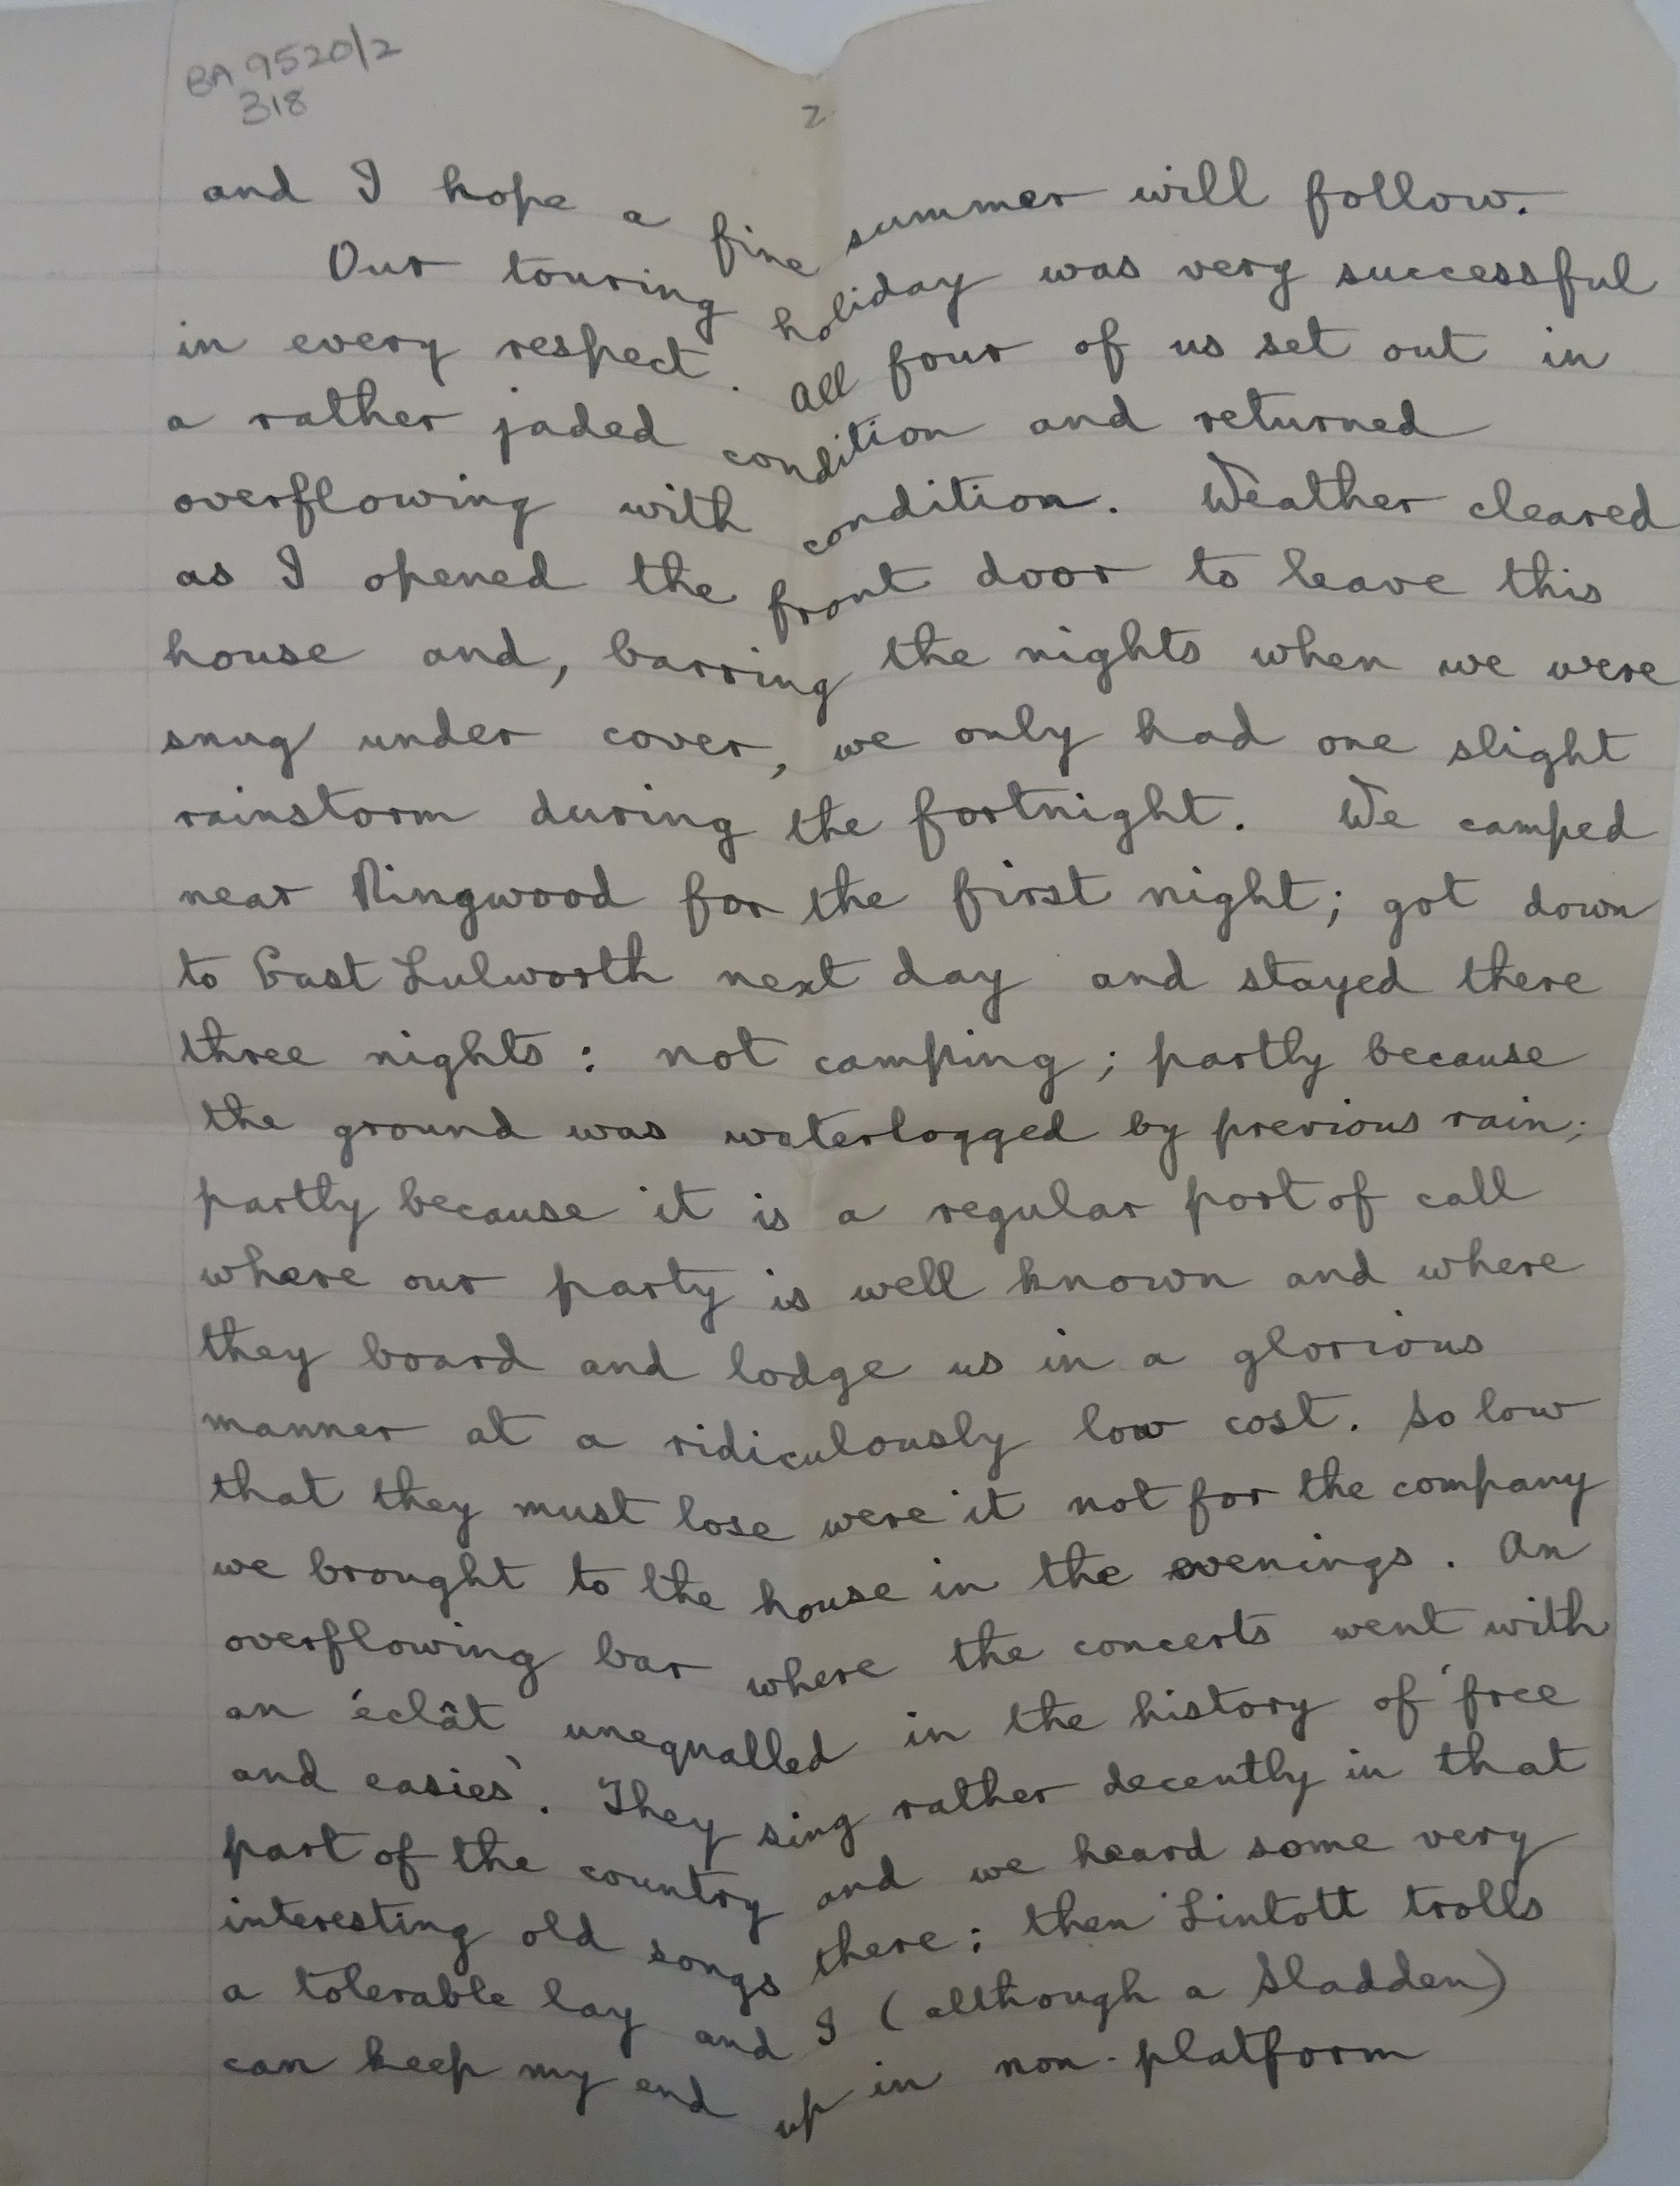 BA 9520/2
318
2.
and I hope a fine summer will follow.
Our touring holiday was very successful
in every respect. All four of us set out in
a rather jaded condition and returned
overflowing with condition. Weather cleared
as I opened the front door to leave this
house and, barring the nights when we were
snug under cover, we only had one slight
rainstorm during the fortnight. We camped
near Ringwood for the first night; got down
to East Lulworth next day and stayed there
three nights: not camping; partly because
the ground was waterlogged by previous rain;
partly because it is a regular port of call
where our party is well known and where
they board and lodge us in a glorious
manner at a ridiculously low cost. So low
that they must lose were it not for the company
we brought to the house in the evenings. An
overflowing bar where the concerts went with
an éclât unequalled in the history of 'free
and easies'. They sing rather decently in that
part of the country and we heard some very
interesting old songs there; then Lintott trolls
a tolerable lay and I (although a Sladden)
can keep my end up in non-platform